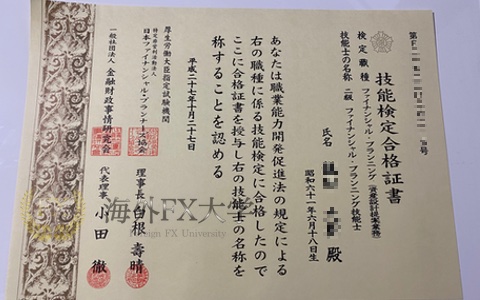 第
号
技能検定合格証書
検定職種 ファイナンシャル・プランニング（資産設計提案業務）
技能士の名称 二級 ファイナンシャル・プランニング技能士
氏名 殿
昭和六十一年六月十八日生
あなたは職業能力開発促進法の規定による
右の職種に係る技能検定に合格したので
ここに合格証書を授与し右の技能士の名称を
称することを認める
平成二十七年十月二十七日
厚生労働大臣指定試験機関
特定非営利活動法人
日本ファイナンシャル・プランナーズ協会
理事長 白根壽晴
一般社団法人 金融財政事情研究会
代表理事 小田徹
海外FX大学
Foreign FX University